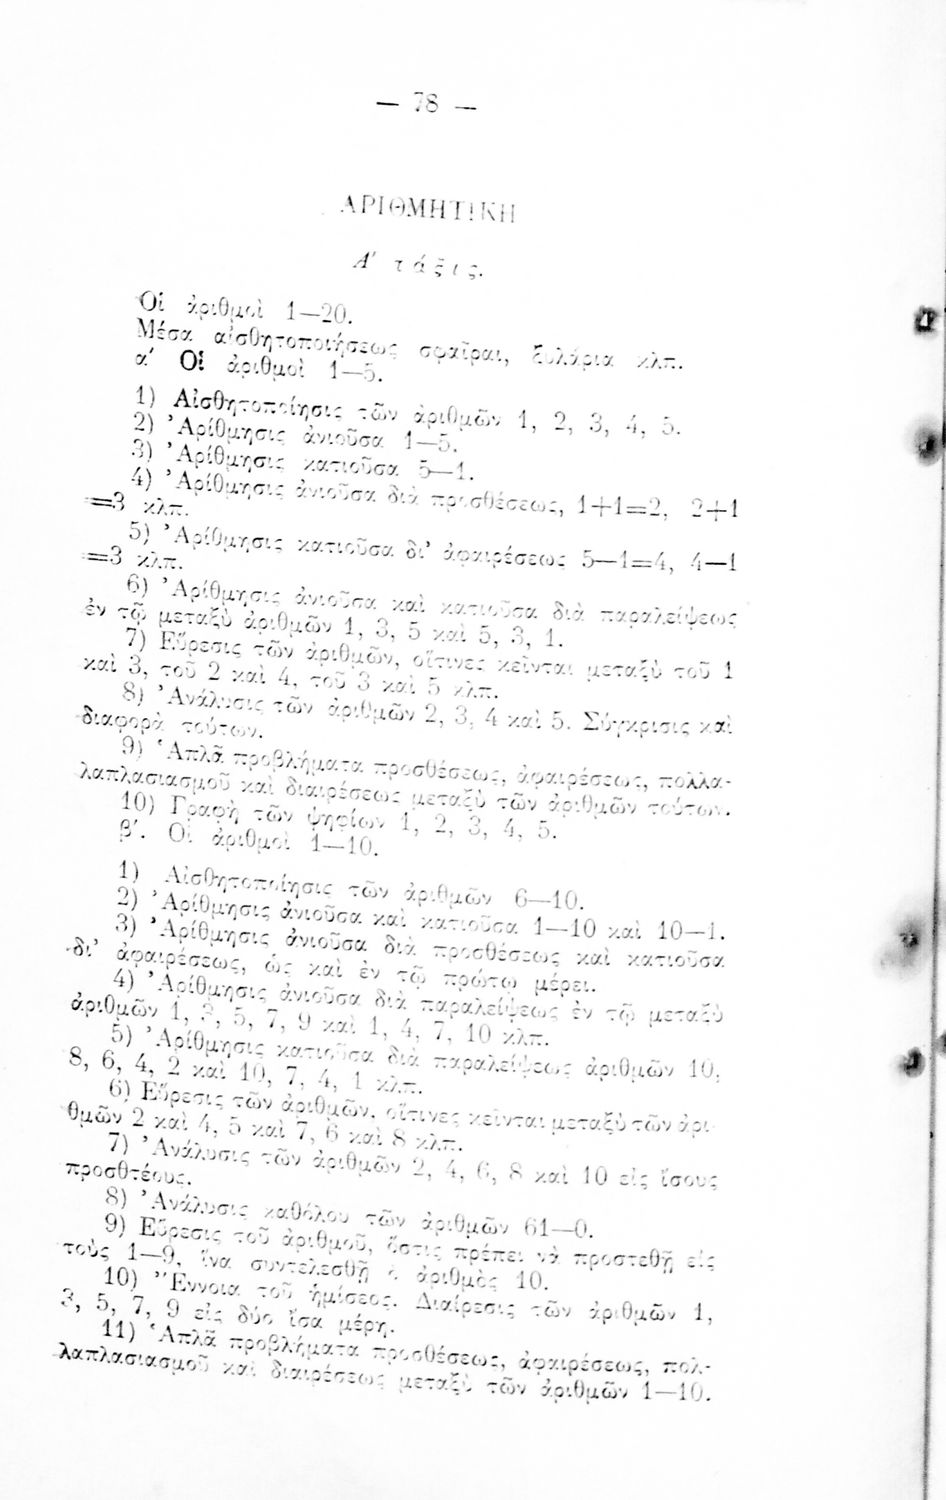 — 78 —
ΑΡΙΘΜΗΤΙΚΗ
Α' τάξις.
Οἱ ἀριθμοὶ 1—20.
Μέσα αἰσθητοποιήσεως σφαῖραι, ξυλάρια κλπ.
α' Οἱ ἀριθμοὶ 1—5.
1) Αἰσθητοποίησις τῶν ἀριθμῶν 1, 2, 3, 4, 5.
2) Ἀρίθμησις ἀνιοῦσα 1—5.
3) Ἀρίθμησις κατιοῦσα 5—1.
4) Ἀρίθμησις ἀνιοῦσα διὰ προσθέσεως, 1+1=2, 2+1
=3 κλπ.
5) Ἀρίθμησις κατιοῦσα δι' ἀφαιρέσεως 5—1=4, 4—1
=3 κλπ.
6) Ἀρίθμησις ἀνιοῦσα καὶ κατιοῦσα διὰ παραλείψεως
ἐν τῷ μεταξὺ ἀριθμῶν 1, 3, 5 καὶ 5, 3, 1.
7) Εὕρεσις τῶν ἀριθμῶν, οἵτινες κεῖνται μεταξὺ τοῦ 1
καὶ 3, τοῦ 2 καὶ 4, τοῦ 3 καὶ 5 κλπ.
8) Ἀνάλυσις τῶν ἀριθμῶν 2, 3, 4 καὶ 5. Σύγκρισις καὶ
διαφορὰ τούτων.
9) Ἁπλᾶ προβλήματα προσθέσεως, ἀφαιρέσεως, πολλα-
λαπλασιασμοῦ καὶ διαιρέσεως μεταξὺ τῶν ἀριθμῶν τούτων.
10) Γραφὴ τῶν ψηφίων 1, 2, 3, 4, 5.
β'. Οἱ ἀριθμοὶ 1—10.
1) Αἰσθητοποίησις τῶν ἀριθμῶν 6—10.
2) Ἀρίθμησις ἀνιοῦσα καὶ κατιοῦσα 1—10 καὶ 10—1.
3) Ἀρίθμησις ἀνιοῦσα διὰ προσθέσεως καὶ κατιοῦσα
δι' ἀφαιρέσεως, ὡς καὶ ἐν τῷ πρώτῳ μέρει.
4) Ἀρίθμησις ἀνιοῦσα διὰ παραλείψεως ἐν τῷ μεταξὺ
ἀριθμῶν 1, 3, 5, 7, 9 καὶ 1, 4, 7, 10 κλπ.
5) Ἀρίθμησις κατιοῦσα διὰ παραλείψεως ἀριθμῶν 10,
8, 6, 4, 2 καὶ 10, 7, 4, 1 κλπ.
6) Εὕρεσις τῶν ἀριθμῶν, οἵτινες κεῖνται μεταξὺ τῶν ἀρι-
θμῶν 2 καὶ 4, 5 καὶ 7, 6 καὶ 8 κλπ.
7) Ἀνάλυσις τῶν ἀριθμῶν 2, 4, 6, 8 καὶ 10 εἰς ἴσους
προσθτέους.
8) Ἀνάλυσις καθόλου τῶν ἀριθμῶν 61—0.
9) Εὕρεσις τοῦ ἀριθμοῦ, ὅστις πρέπει νὰ προστεθῇ εἰς
τοὺς 1—9, ἵνα συντελεσθῇ ὁ ἀριθμὸς 10.
10) Ἔννοια τοῦ ἡμίσεος. Διαίρεσις τῶν ἀριθμῶν 1,
3, 5, 7, 9 εἰς δύο ἴσα μέρη.
11) Ἁπλᾶ προβλήματα προσθέσεως, ἀφαιρέσεως, πολ-
λαπλασιασμοῦ καὶ διαιρέσεως μεταξὺ τῶν ἀριθμῶν 1—10.